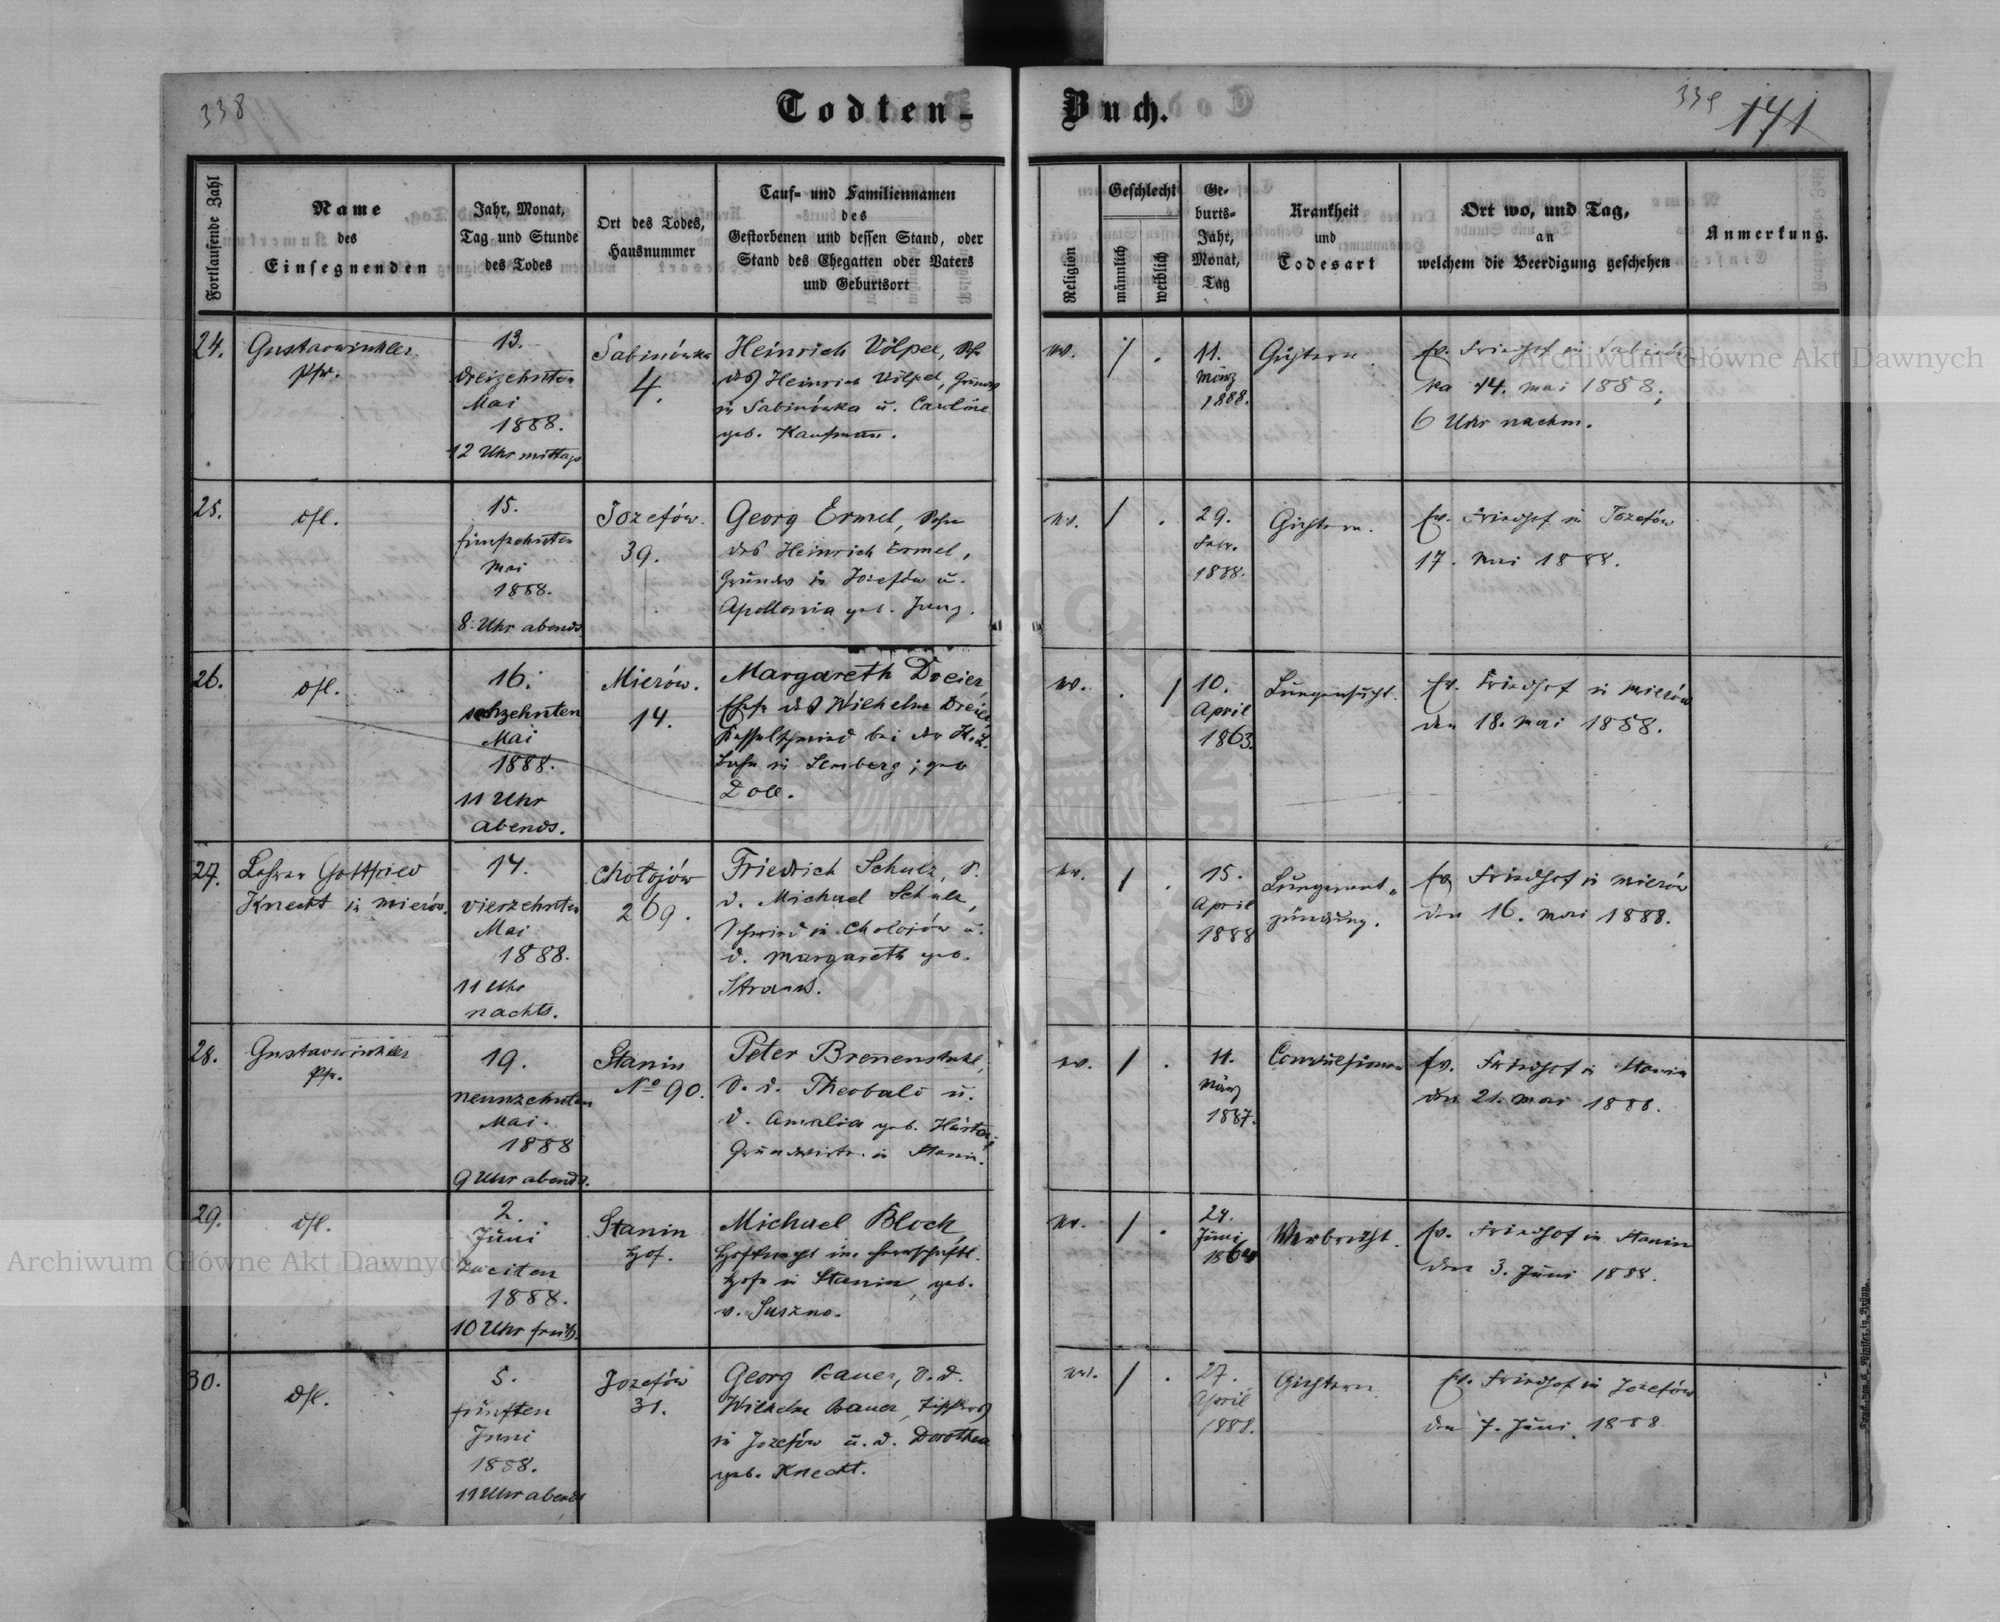 338
Todten-
Buch.
339
171
Fortlaufende Zahl
Name
des
Einsegnenden
Jahr, Monat,
Tag und Stunde
des Todes
Ort des Todes,
Hausnummer
Tauf- und Familiennamen
des
Gestorbenen und dessen Stand, oder
Stand des Ehegatten oder Vaters
und Geburtsort
Religion
Geschlecht
männlich
weiblich
Ge-
burts-
Jahr,
Monat,
Tag
Krankheit
und
Todesart
Ort wo, und Tag,
an
welchem die Beerdigung geschehen
Anmerkung.
24.
Gustav Winkler
Pfr.
13.
dreizehnten
Mai
1888.
12 Uhr mittags
Sabinówka
4.
Heinrich Völpel, Sohn
des Heinrich Völpel, Grundw
in Sabinówka u. Caroline
geb. Kaufmann.
11.
März
1888.
Gichtern
Ev. Friedhof in Sabinów
ka 14. Mai 1888,
6 Uhr nachm.
25.
dsl.
15.
fünfzehnten
Mai
1888.
8 Uhr abends
Jozefów.
39.
Georg Ermel, Sohn
des Heinrich Ermel,
Grundw in Jozefów u.
Apollonia geb. Jung.
29.
Febr.
1888.
Gichtern.
Ev. Friedhof in Jozefów
17. Mai 1888.
26.
dsl.
16.
sechzehnten
Mai
1888.
11 Uhr
abends.
Mierów.
14.
Margareth Dreier,
Ehefr des Wilhelm Dreier,
Kesselschmied bei der
in Lemberg; geb
Doll.
10.
April
1863.
Lungensucht.
Ev. Friedhof in Mierów
den 18. Mai 1888.
27.
Lehrer Gottfried
Knecht in Mierów.
14.
vierzehnten
Mai
1888.
11 Uhr
nachts.
Chołojów
269.
Friedrich Schulz, S.
d. Michael Schulz,
Schmied in Chołojów u.
d. Margareth geb.
Strauss.
15.
April
1888
Lungenent-
zündung.
Ev Friedhof in Mierów
den 16. Mai 1888.
28.
Gustav Winkler
Pfr.
19.
neunzehnten
Mai.
1888
9 Uhr abends.
Stanin
No 90.
Peter Brennenstuhl,
S. d. Theobald u.
d. Amalia geb.
Grundwirte in Stanin.
11.
März
1887.
Convulsionen
Ev. Friedhof in Stanin
den 21. Mai 1888.
29.
dsl.
2.
Juni
zweiten
1888.
10 Uhr früh.
Stanin
Hof.
Michael Block
Hofknecht im herrschaftl.
Hofe in Stanin, geb.
v. Suszno.
24.
Juni
1864
Ev. Friedhof in Stanin
den 3. Juni 1888.
30.
dsl.
5.
fünften
Juni
1888.
11 Uhr abends
Jozefów
31.
Georg Bauer, S. d.
Wilhelm Bauer,
in Jozefów u. d. Dorothea
geb. Knecht.
27.
April
1888.
Gichtern.
Ev. Friedhof in Jozefów
den 7. Juni 1888.
Archiwum Główne Akt Dawnych
Archiwum Główne Akt Dawnych